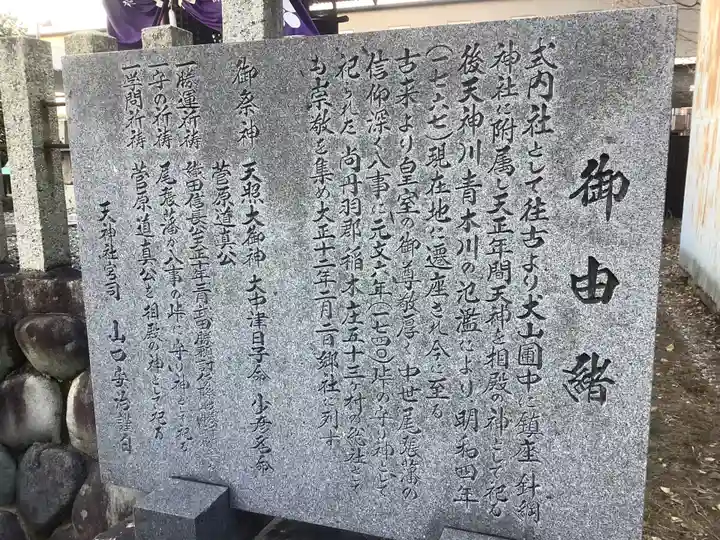 御由緒
式内社として往古より犬山圃中に鎮座し針綱
神社に附属し天正年間天神を相殿の神として祀る
後天神川青木川の氾濫により明和四年
(一七六七)現在地に遷座され今に至る
古来より皇室の御尊敬厚く中世尾張藩の
信仰深く八事に元文六年(一七四〇)峠の守り神として
祀られた尚丹羽郡稲木庄五十三ヶ村の総社として
も崇敬を集め大正十二年二月二日郷社に列す
御祭神 天照大御神 大中津日子命 少彦名命
菅原道真公
一勝運祈祷 織田信長公天正二年二月武田勝頼
一守の祈祷 尾張藩が八事の峠の守り神として祀る
一学問祈祷 菅原道真公を相殿の神として祀る
天神社宮司 山口安治謹書